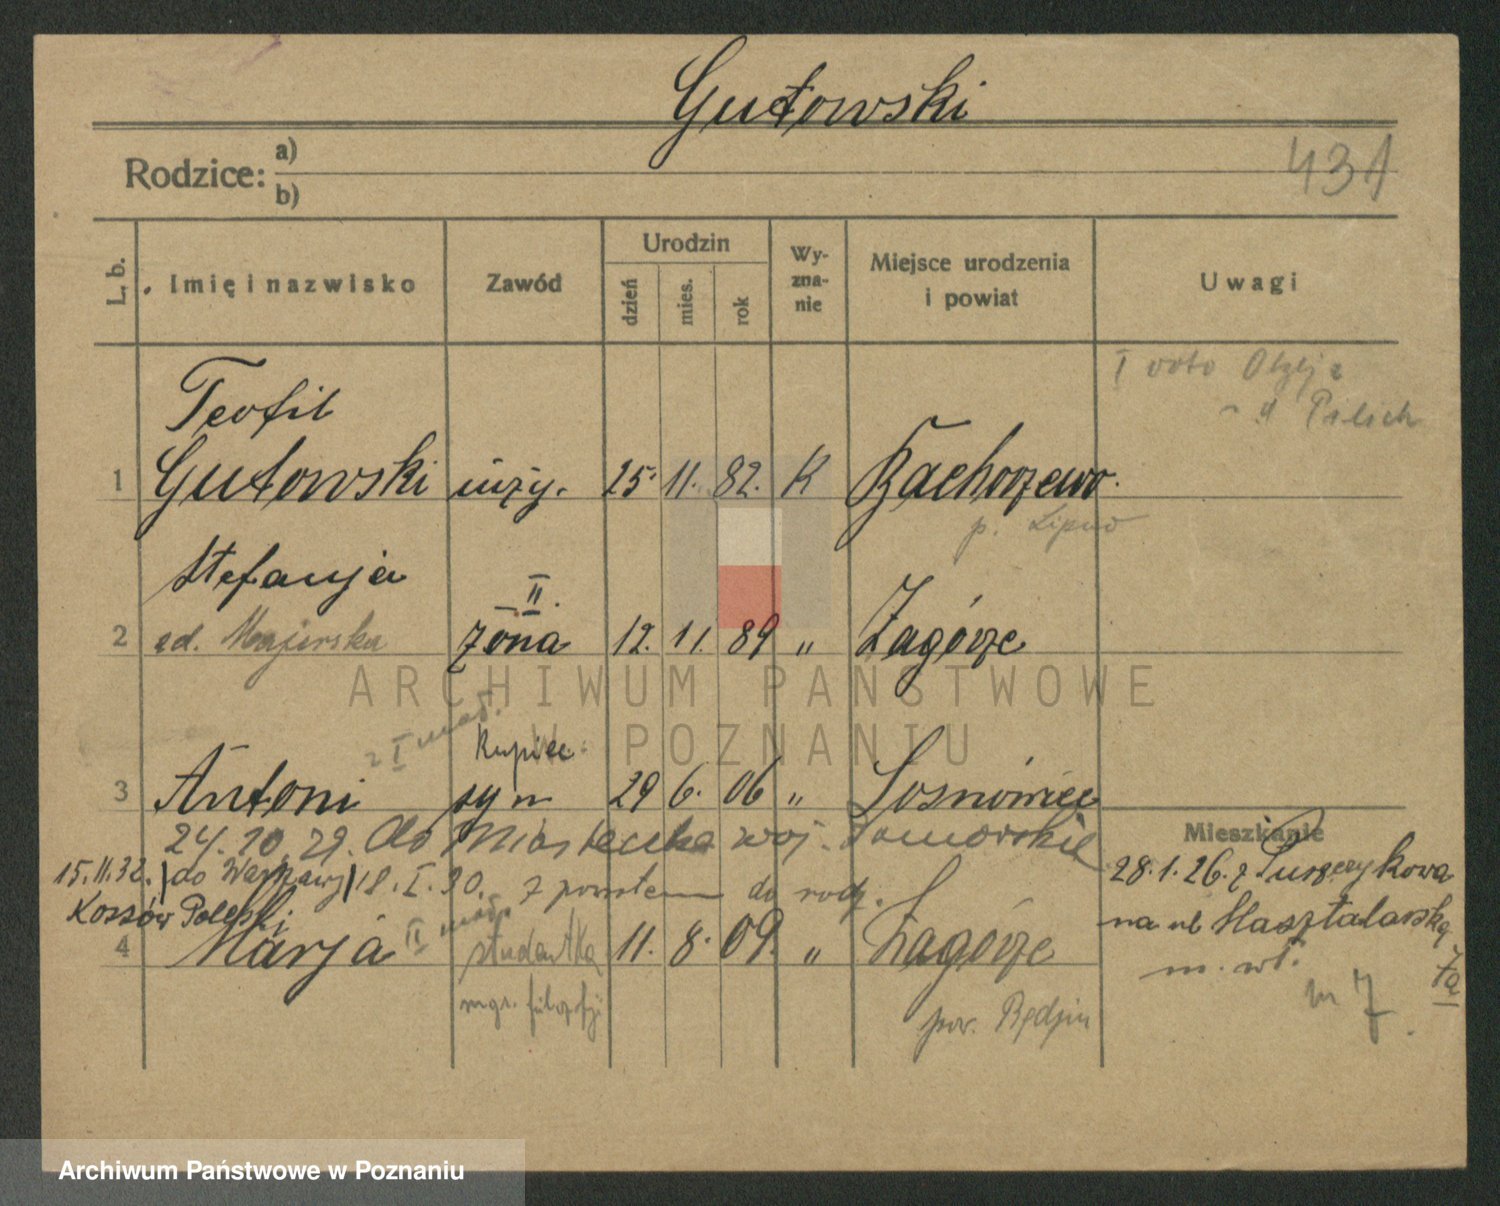 Gutowski
Rodzice: a)
b)
431
L. b.
Imię i nazwisko
Zawód
Urodzin
dzień
mies.
rok
Wy-
zna-
nie
Miejsce urodzenia
i powiat
Uwagi
I voto
Teofil
1 Gutowski inży. 25. 11. 82. K Bachorzewo
p. Lipno
Stefanja II.
2 zd. Majerska żona 12. 11. 89 " Zagórze
z I małż. kupiec
3 Antoni syn 29 6. 06 " Sosnowiec
24. 10. 29. do Miasteczka woj. Pomorskie
15.11.32. do Warszawy 18. I. 30. z powrotem do rodz.
Kossów Poleski
II małż.
4 Marja studentka 11. 8. 09. " Zagórze
mgr. filozofji
pow. Będzin
Mieszkanie
28.1.26. z
na ul Masztalarską
m. wł.
7a
m 7
ARCHIWUM PAŃSTWOWE
W POZNANIU
Archiwum Państwowe w Poznaniu